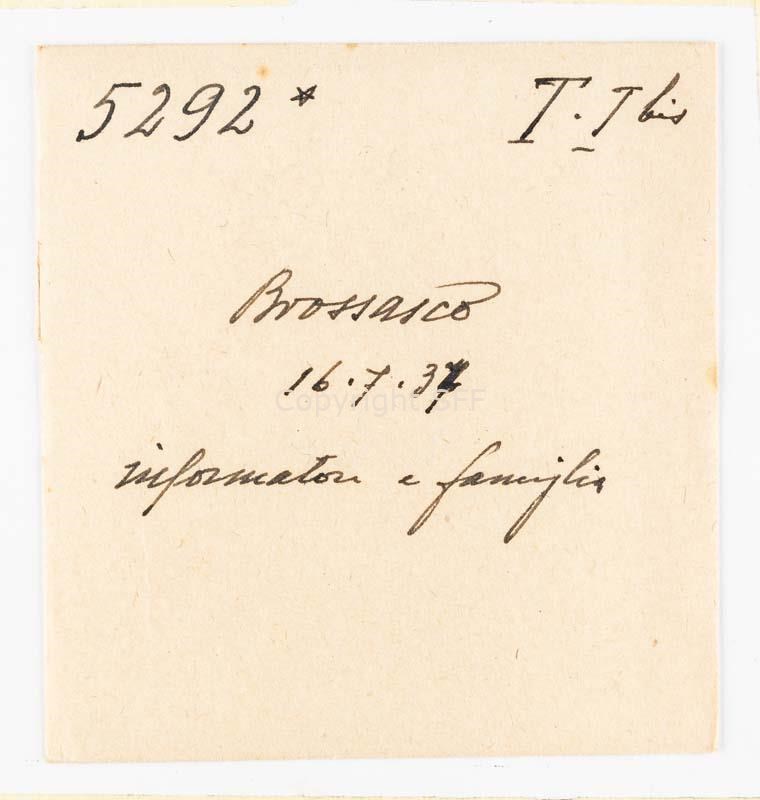 5292 * T. I bis
Brossasco
16.7.37
Copyright SFF
informatori e famiglia